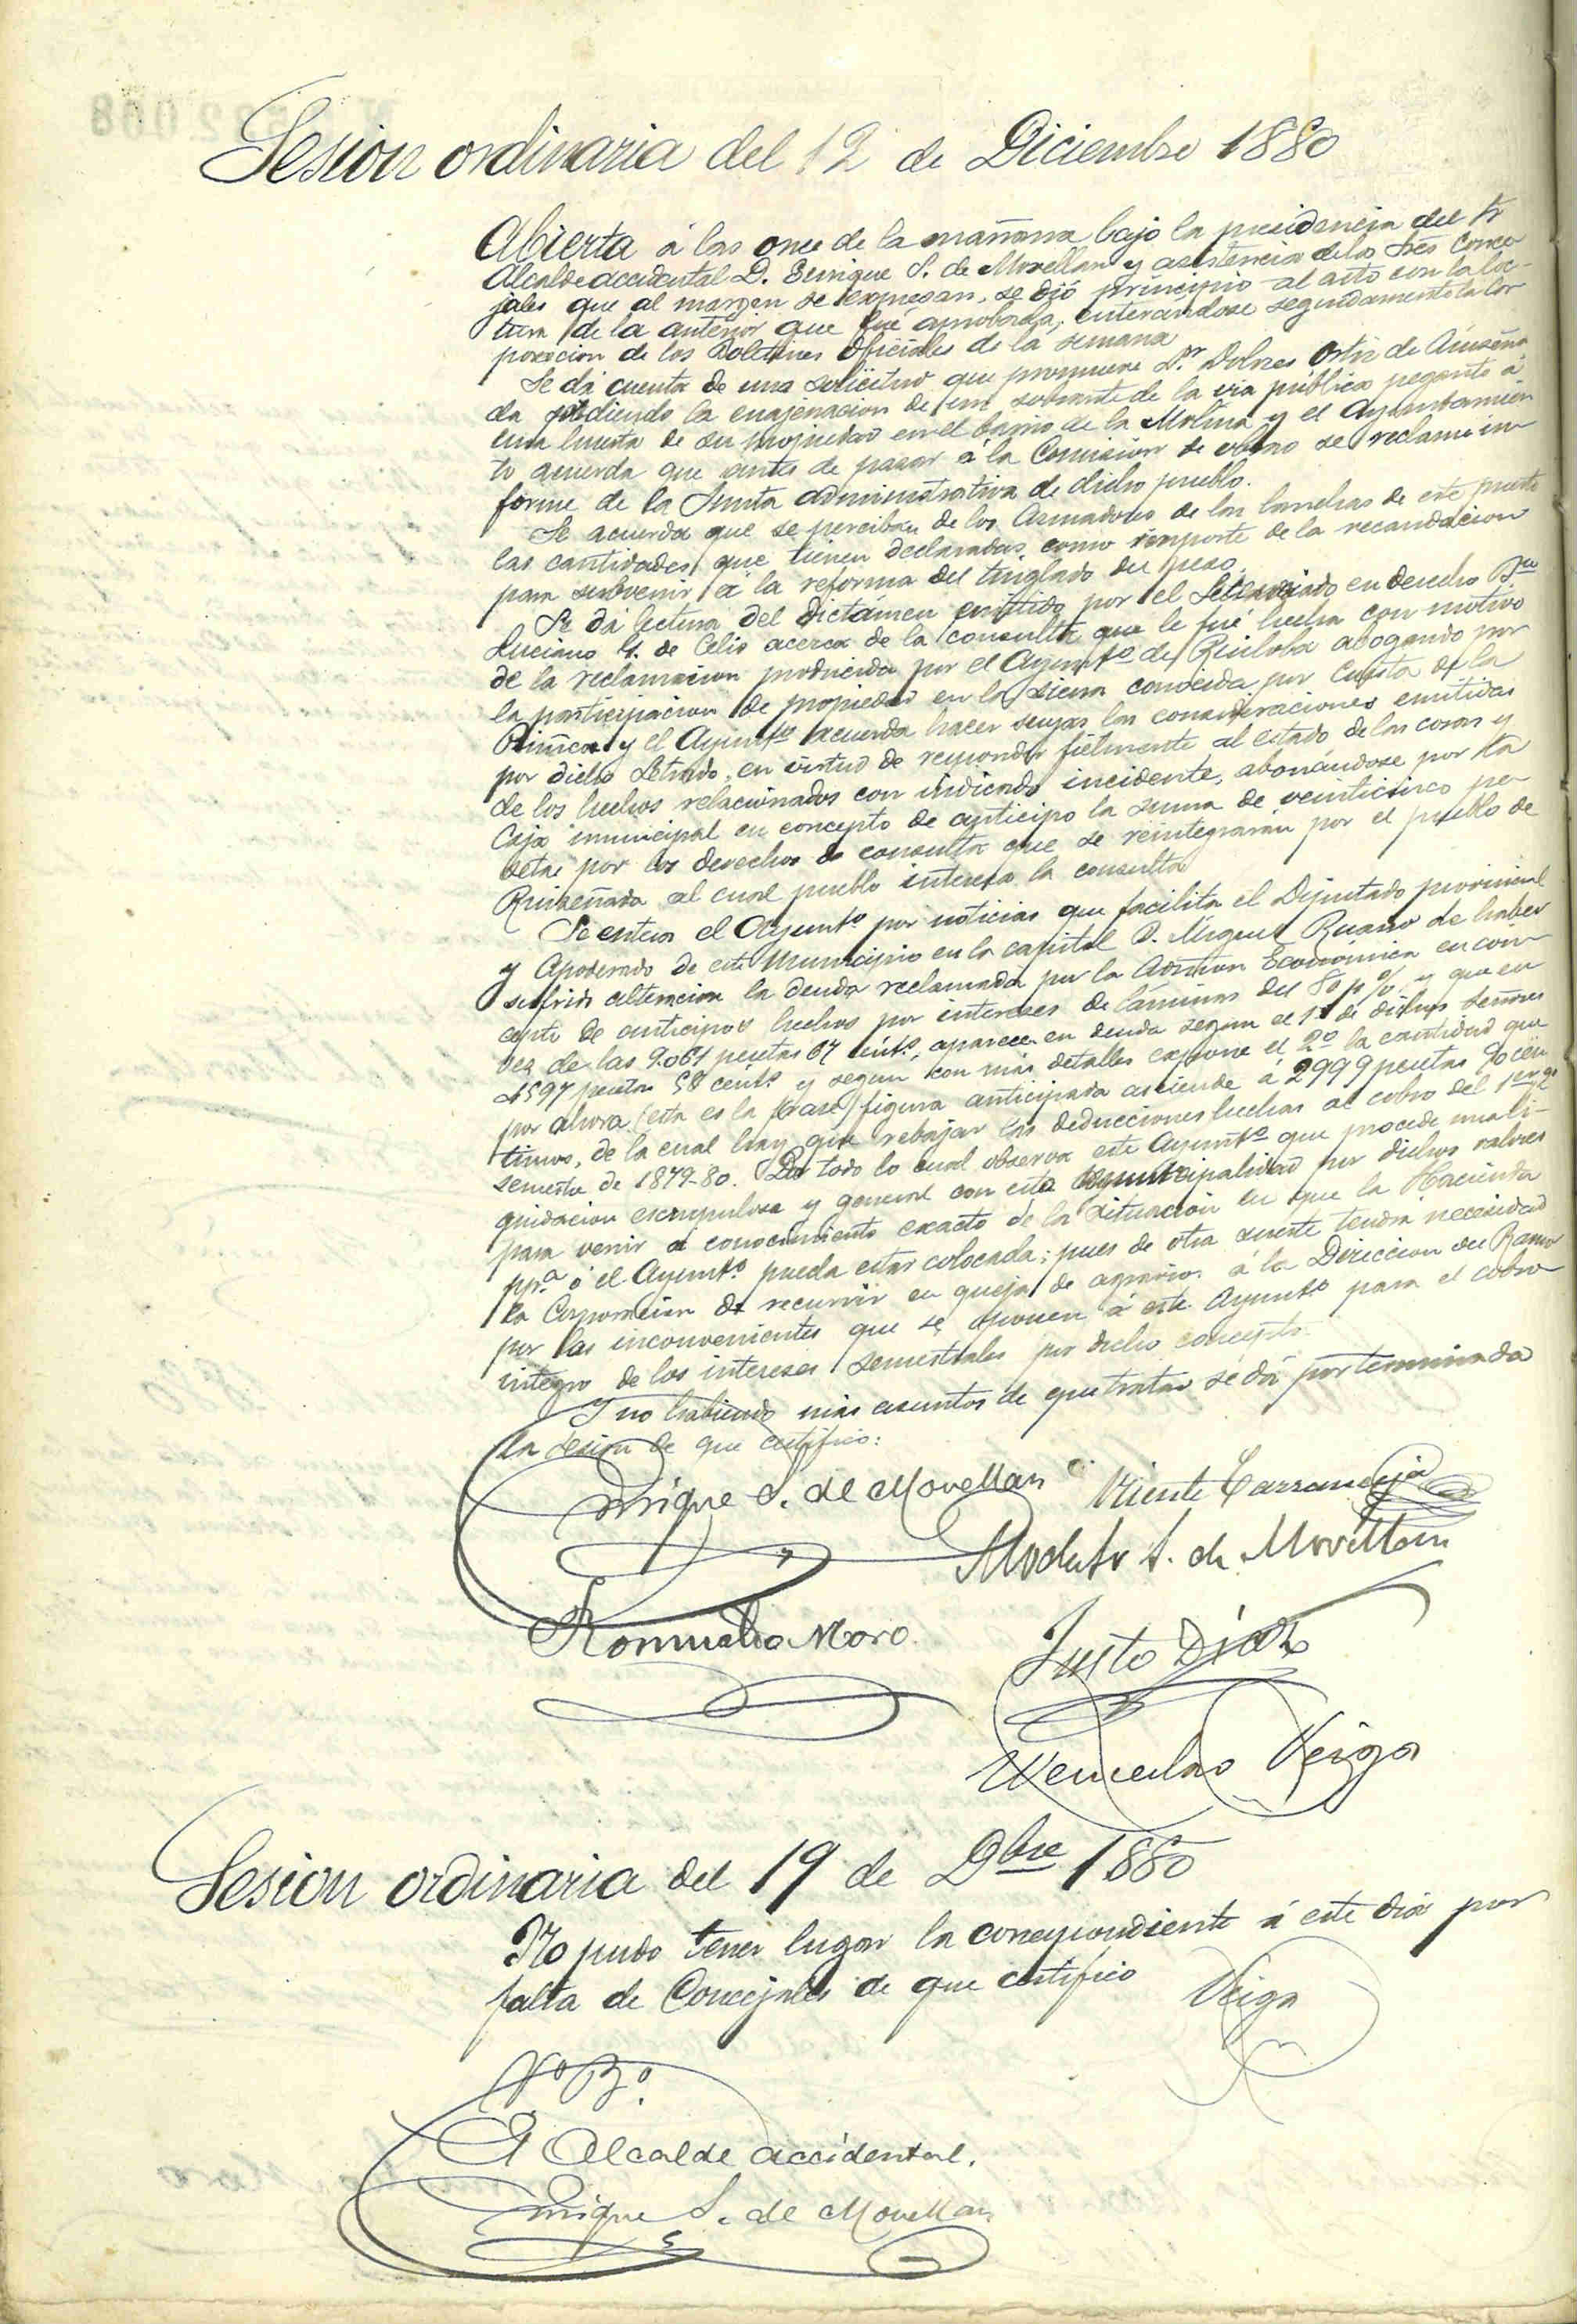 Sesion ordinaria del 12 de Diciembre 1880
Abierta á las once de la mañana bajo la presidencia del Sr
Alcalde accidental D. Enrique S. de Movellan y asistencia de los Sres Conce
jales que al margen se expresan, se dió principio al acto con la lec-
tura de la anterior que fué aprobada, enterandose seguidamente la Cor
poracion de los Boletines Oficiales de la semana
Se dá cuenta de una solicitud que promueve Dª Dolores Ortiz de
da pidiendo la enajenacion de un sobrante de la via pública pegante á
una huerta de su propiedad en el barrio de la Molina y el Ayuntamien
to acuerda que antes de pasar á la Comision de obras se reclame in
forme de la Junta administrativa de dicho pueblo.
Se acuerda que se perciban de los Armadores de las lanchas de este puerto
las cantidades que tienen declaradas como importe de la recaudacion
para subvenir á la reforma del tinglado del peso.
Se dá lectura del dictámen emitido por el Licenciado en derecho Dn
Luciano G. de Celis acerca de la consulta que le fué hecha con motivo
de la reclamacion producida por el Ayuntº de Ruiloba abogando por
la participacion de propiedad en la sierra conocida por Cuesta de la
y el Ayuntº acuerda hacer suyas las consideraciones emitidas
por dicho Letrado, en virtud de responder fielmente al estado de las cosas y
de los hechos relacionados con indicado incidente, abonándose por la
Caja municipal en concepto de anticipo la suma de veinticinco pe
setas por los derechos de consulta que se reintegrarán por el pueblo de
Ruiseñada al cual pueblo interesa la consulta
Se entera el Ayuntº por noticias que facilita el Diputado provincial
y Apoderado de este Municipio en la capital D. Miguel Ruano de haber
sufrido alteracion la deuda reclamada por la Admon Económica en con
cepto de anticipos hechos por intereses de láminas del 80 p% y que en
vez de las 9.061 pesetas 67 cénts, aparece en deuda segun el 1º de dichos señores
4597 pesetas 58 cénts y segun con más detalles expone el 2º la cantidad que
por ahora (esta es la frase) figura anticipada asciende á 2999 pesetas 90 cén
timos, de la cual hay que rebajar las deducciones hechas al cobro del 1er y 2º
semestre de 1879-80. Por todo lo cual observa este Ayuntº que procede una li-
quidacion escrupulosa y general con esta Municipalidad por dichos valores
para venir á conocimiento exacto de la situacion en que la Hacienda
ppª ó el Ayuntº pueda estar colocada; pues de otra suerte tendrá necesidad
la Corporacion de recurrir en queja de agravios á la Direccion del Ramo
por los inconvenientes que se oponen á este Ayuntº para el cobro
integro de los intereses semestrales por dicho concepto.
Y no habiendo más asuntos de que tratar se dá por terminada
la sesion de que certifico:
Enrique S. de Movellan Vicente Carranceja
Modesto S. de Movellan
Romualdo Moro
Justo Diaz
Wenceslao Veiga
Sesion ordinaria del 19 de Dbre 1880
No pudo tener lugar la correspondiente á este dia por
falta de Concejales de que certifico
Veiga
Vº Bº
El Alcalde accidental.
Enrique S. de Movellan